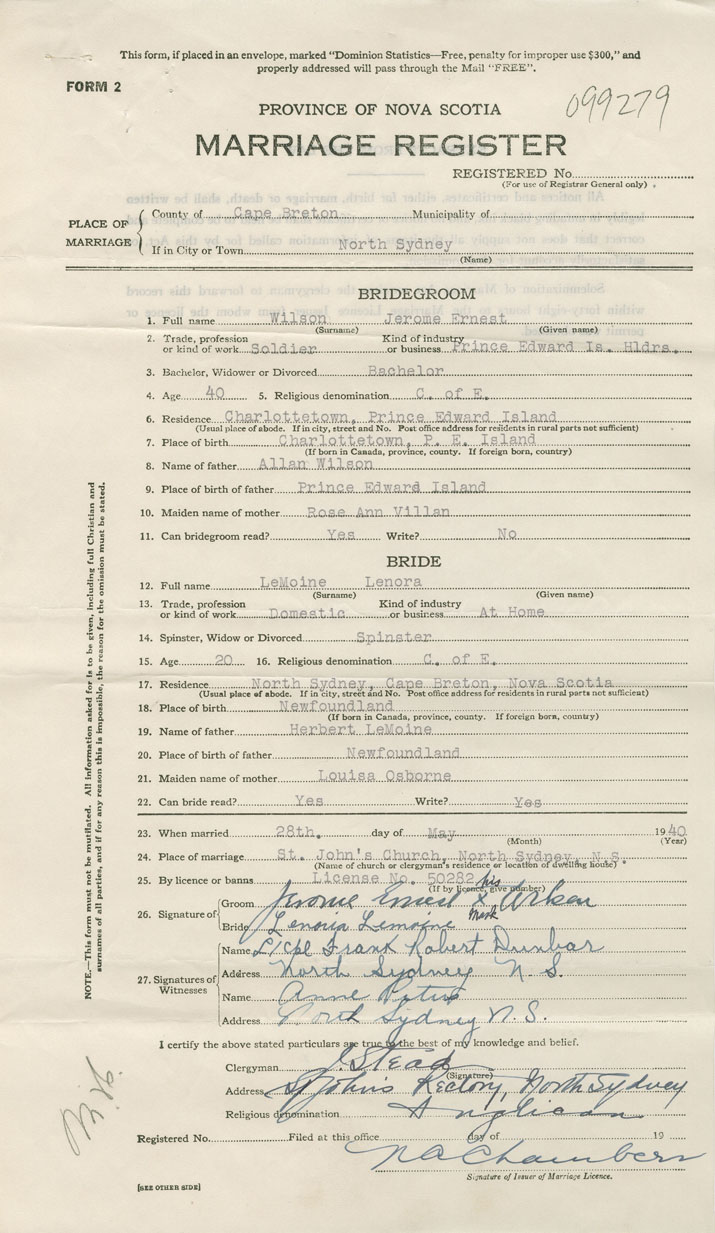 This form, if placed in an envelope, marked "Dominion Statistics—Free, penalty for improper use $300," and
properly addressed will pass through the Mail "FREE".
FORM 2
099279
PROVINCE OF NOVA SCOTIA
MARRIAGE REGISTER
REGISTERED No.
(For use of Registrar General only)
PLACE OF MARRIAGE
County of Cape Breton Municipality of
If in City or Town North Sydney
(Name)
BRIDEGROOM
1. Full name Wilson Jerome Ernest
(Surname) (Given name)
2. Trade, profession or kind of work Soldier Kind of industry or business Prince Edward Is. Hldrs.
3. Bachelor, Widower or Divorced Bachelor
4. Age 40 5. Religious denomination C. of E.
6. Residence Charlottetown, Prince Edward Island
(Usual place of abode. If in city, street and No. Post office address for residents in rural parts not sufficient)
7. Place of birth Charlottetown, P. E. Island
(If born in Canada, province, county. If foreign born, country)
8. Name of father Allan Wilson
9. Place of birth of father Prince Edward Island
10. Maiden name of mother Rose Ann Villan
11. Can bridegroom read? Yes Write? No
BRIDE
12. Full name LeMoine Lenora
(Surname) (Given name)
13. Trade, profession or kind of work Domestic Kind of industry or business At Home
14. Spinster, Widow or Divorced Spinster
15. Age 20 16. Religious denomination C. of E.
17. Residence North Sydney, Cape Breton, Nova Scotia
(Usual place of abode. If in city, street and No. Post office address for residents in rural parts not sufficient)
18. Place of birth Newfoundland
(If born in Canada, province, county. If foreign born, country)
19. Name of father Herbert LeMoine
20. Place of birth of father Newfoundland
21. Maiden name of mother Louisa Osborne
22. Can bride read? Yes Write? Yes
23. When married 28th. day of May 1940
(Month) (Year)
24. Place of marriage St. John's Church, North Sydney, N.S.
(Name of church or clergyman's residence or location of dwelling house)
25. By licence or banns License No. 50282
(If by licence, give number)
his
26. Signature of Groom Jerome Ernest X
mark
Bride Lenora Lemoine
27. Signatures of Witnesses
Name L/Cpl Frank Robert Dunbar
Address North Sydney N. S.
Name Anne Peters
Address North Sydney N. S.
I certify the above stated particulars are true to the best of my knowledge and belief.
Clergyman J. Stead
(Signature)
Address St John's Rectory, North Sydney
Religious denomination Anglican
Registered No. Filed at this office day of 19
N A Chambers
Signature of Issuer of Marriage Licence.
[SEE OTHER SIDE]
NOTE.—This form must not be mutilated. All information asked for is to be given, including full Christian and
surnames of all parties, and if for any reason this is impossible, the reason for the omission must be stated.